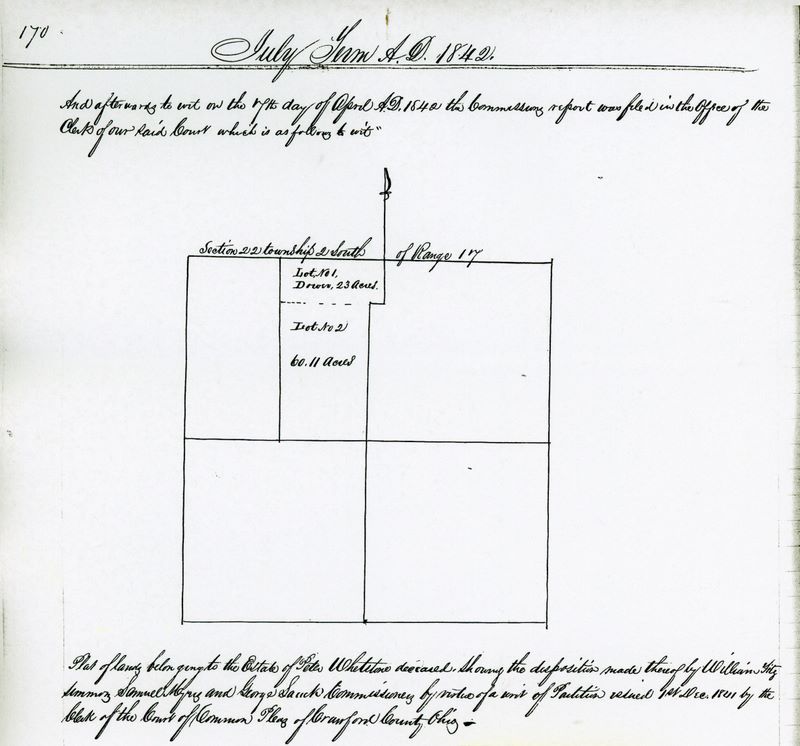 170
July Term A.D. 1842.
And afterwards to wit on the 7th day of April A.D. 1842 the Commissions report was filed in the Office of the
Clerk of our said Court which is as follows to wit"
Section 22 township 2 South of Range 17
Lot No 1,
Dower, 23 Acres.
Lot No 2
60.11 Acres
Plat of lands belonging to the Estate of Peter Whetstone deceased. Showing the disposition made thereof by William Fitz
simmons Samuel Myers and George Commissioners by virtue of a writ of Partition issued 1st Dec. 1841 by the
Clerk of the Court of Common Pleas of Crawford County Ohio